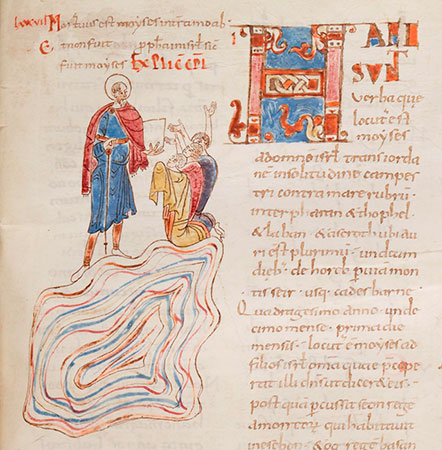 lxxviii Mortuus est moyses in terra moab
Et non fuit ppheta in isrl sic
fuit moyses Expl cpl
HAEC
SUNT
verba que
locut est
moyses
ad omnē isrl trans iorda
nē in solitudine campes
tri contra mare rubrū
inter pharan & thophel
& laban & aseroth ubi au
ri est plurimū undecim
dieb; de horeb p uia mon
tis seir usq; cades barne
Quadragesimo anno unde
cimo mense prima die
mensis locut ē moyses ad
filios isrł omā quae p̄cepe
rat illi dns ut dicer& eis
post quā pcussit seon regē
amorreor qui habitauit
in esebon & og regē basan